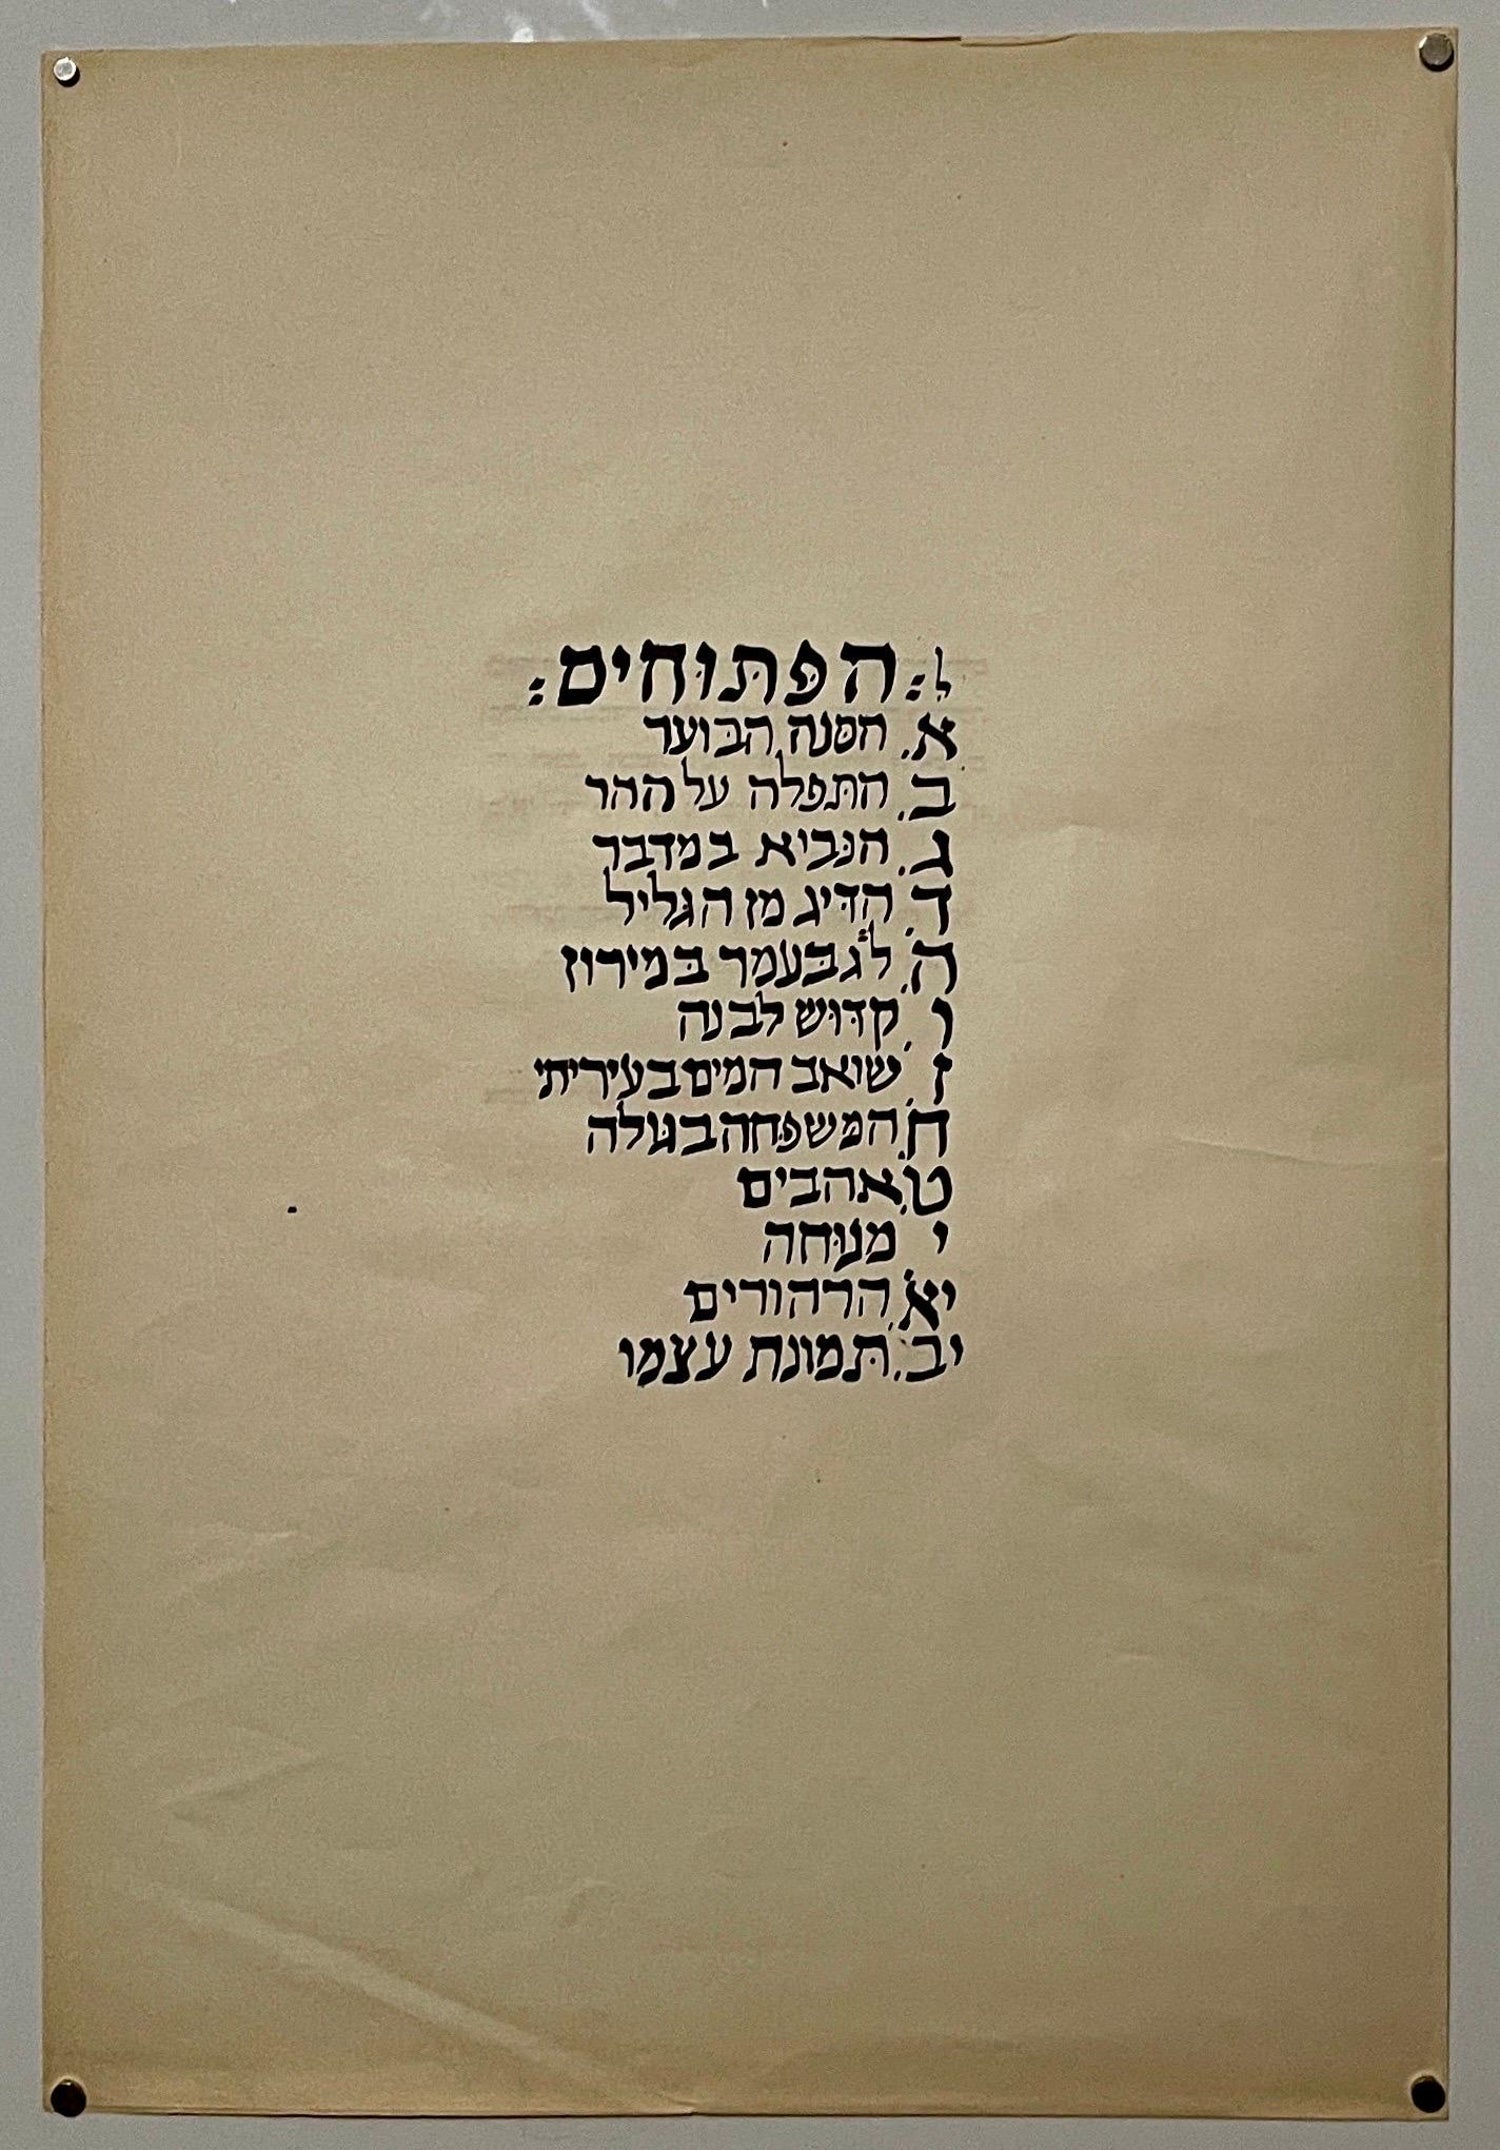 הפתוחים:
א. הסנה הבוער
ב. התפלה על ההר
ג. הנביא במדבר
ד. הדיג מן הגליל
ה. ל"ג בעמר במירון
ו. קדוש לבנה
ז. שואב המים בעיריתי
ח. המשפחה בגולה
ט. אהבים
י מנוחה
יא. הרהורים
יב. תמונת עצמו